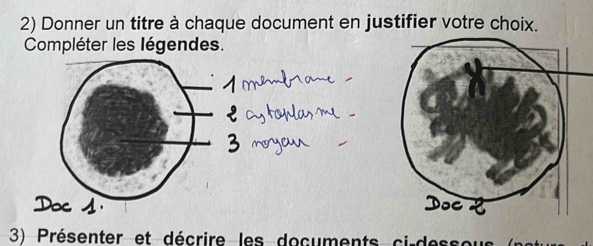 2) Donner un titre à chaque document en justifier votre choix.
Compléter les légendes.
1 membrane -
2 cytoplasme -
3 noyau -
Doc 1.
Doc 2
3) Présenter et décrire les documents ci-dessous